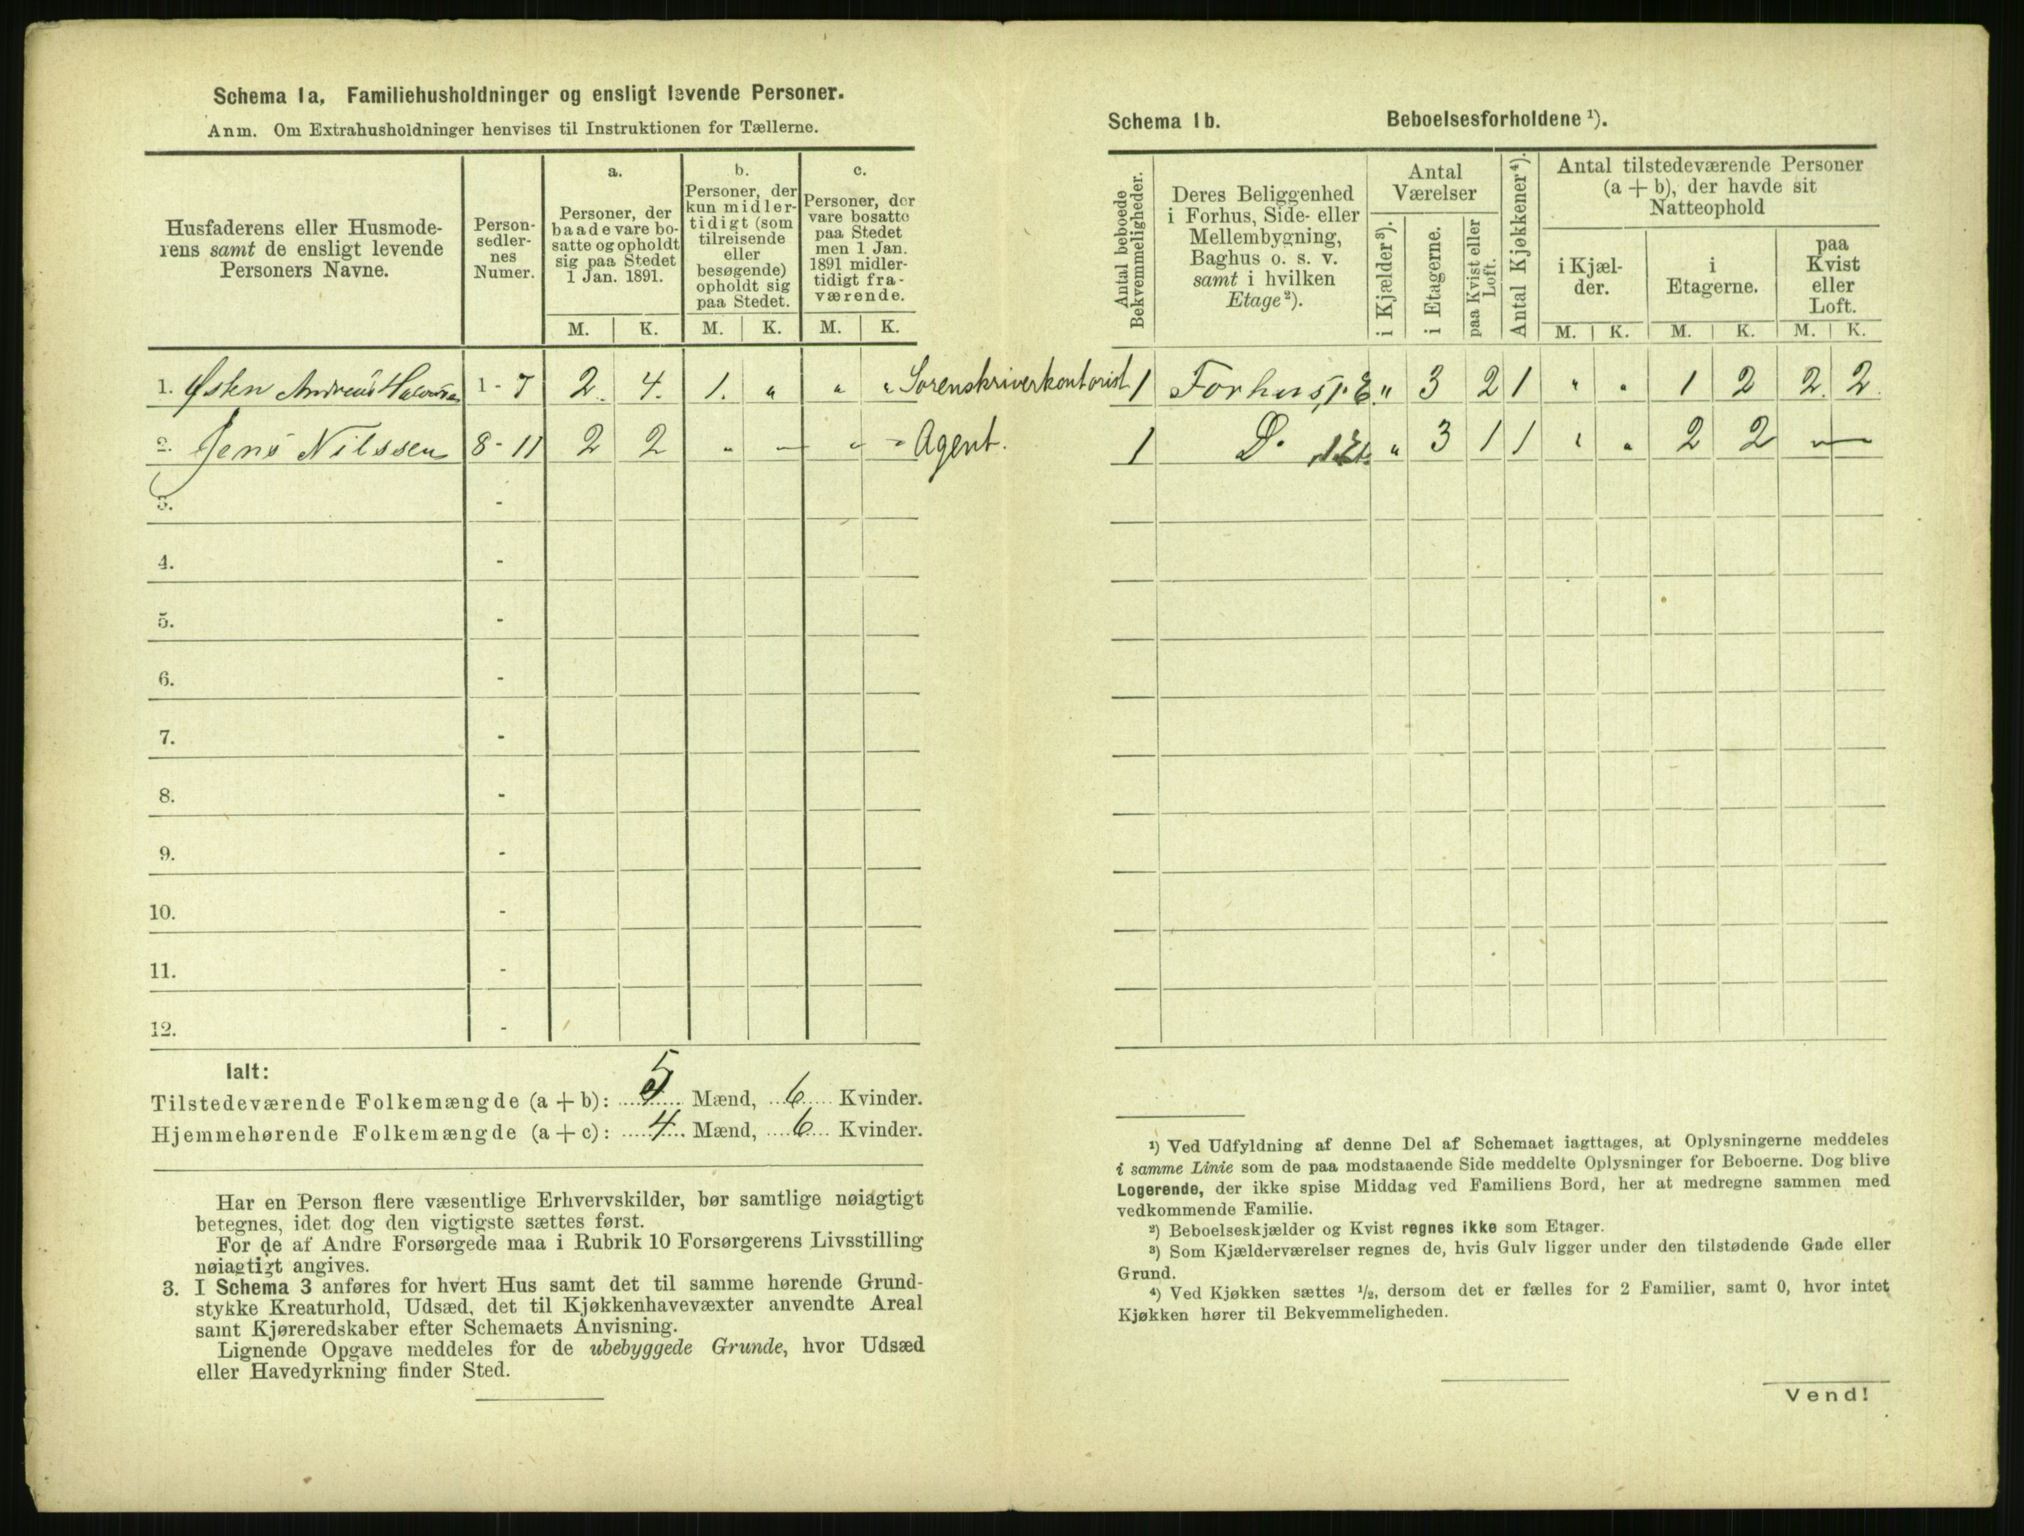 Schema 1a, Familiehusholdninger og ensligt levende Personer.
Anm. Om Extrahusholdninger henvises til Instruktionen for Tællerne.
Husfaderens eller Husmode-
rens samt de ensligt levende
Personers Navne.
Person-
sedler-
nes
Numer.
a.
Personer, der
baade vare bo-
satte og opholdt
sig paa Stedet
1 Jan. 1891.
M. K.
b.
Personer, der
kun midler-
tidigt (som
tilreisende
eller
besøgende)
opholdt sig
paa Stedet.
M. K.
c.
Personer, der
vare bosatte
paa Stedet
men 1 Jan.
1891 midler-
tidigt fra-
værende.
M. K.
1. Østen Andreas 1 - 7 2. 4. 1. " " " Sorenskriverkontorist
2. Jens Nilssen 8 - 11 2 2 " — " - Agent.
3. -
4. -
5. -
6. -
7. -
8. -
9. -
10. -
11. -
12. -
Ialt:
Tilstedeværende Folkemængde (a + b): 5 Mænd, 6 Kvinder.
Hjemmehørende Folkemængde (a + c): 4 Mænd, 6 Kvinder.
Har en Person flere væsentlige Erhvervskilder, bør samtlige nøiagtigt
betegnes, idet dog den vigtigste sættes først.
For de af Andre Forsørgede maa i Rubrik 10 Forsørgerens Livsstilling
nøiagtigt angives.
3. I Schema 3 anføres for hvert Hus samt det til samme hørende Grund-
stykke Kreaturhold, Udsæd, det til Kjøkkenhavevæxter anvendte Areal
samt Kjøreredskaber efter Schemaets Anvisning.
Lignende Opgave meddeles for de ubebyggede Grunde, hvor Udsæd
eller Havedyrkning finder Sted.
Schema 1b. Beboelsesforholdene ¹).
Antal beboede
Bekvemmeligheder.
Deres Beliggenhed
i Forhus, Side- eller
Mellembygning,
Baghus o. s. v.
samt i hvilken
Etage ²).
Antal
Værelser
i Kjælder ³).
i Etagerne.
paa Kvist eller
Loft.
Antal Kjøkkener ⁴).
Antal tilstedeværende Personer
(a + b), der havde sit
Natteophold
i Kjæl-
der.
M. K.
i
Etagerne.
M. K.
paa
Kvist
eller
Loft.
M. K.
1 Forhus, 1. E. " 3 2 1 " " 1 2 2 2
1 D. 1 Et. " 3 1 1 " " 2 2 — —
¹) Ved Udfyldning af denne Del af Schemaet iagttages, at Oplysningerne meddeles
i samme Linie som de paa modstaaende Side meddelte Oplysninger for Beboerne. Dog blive
Logerende, der ikke spise Middag ved Familiens Bord, her at medregne sammen med
vedkommende Familie.
²) Beboelseskjælder og Kvist regnes ikke som Etager.
³) Som Kjælderværelser regnes de, hvis Gulv ligger under den tilstødende Gade eller
Grund.
⁴) Ved Kjøkken sættes ½, dersom det er fælles for 2 Familier, samt 0, hvor intet
Kjøkken hører til Bekvemmeligheden.
Vend!